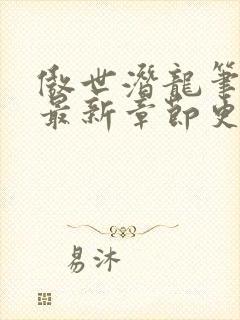 傲世潜龍筆
最新章節史
易沐